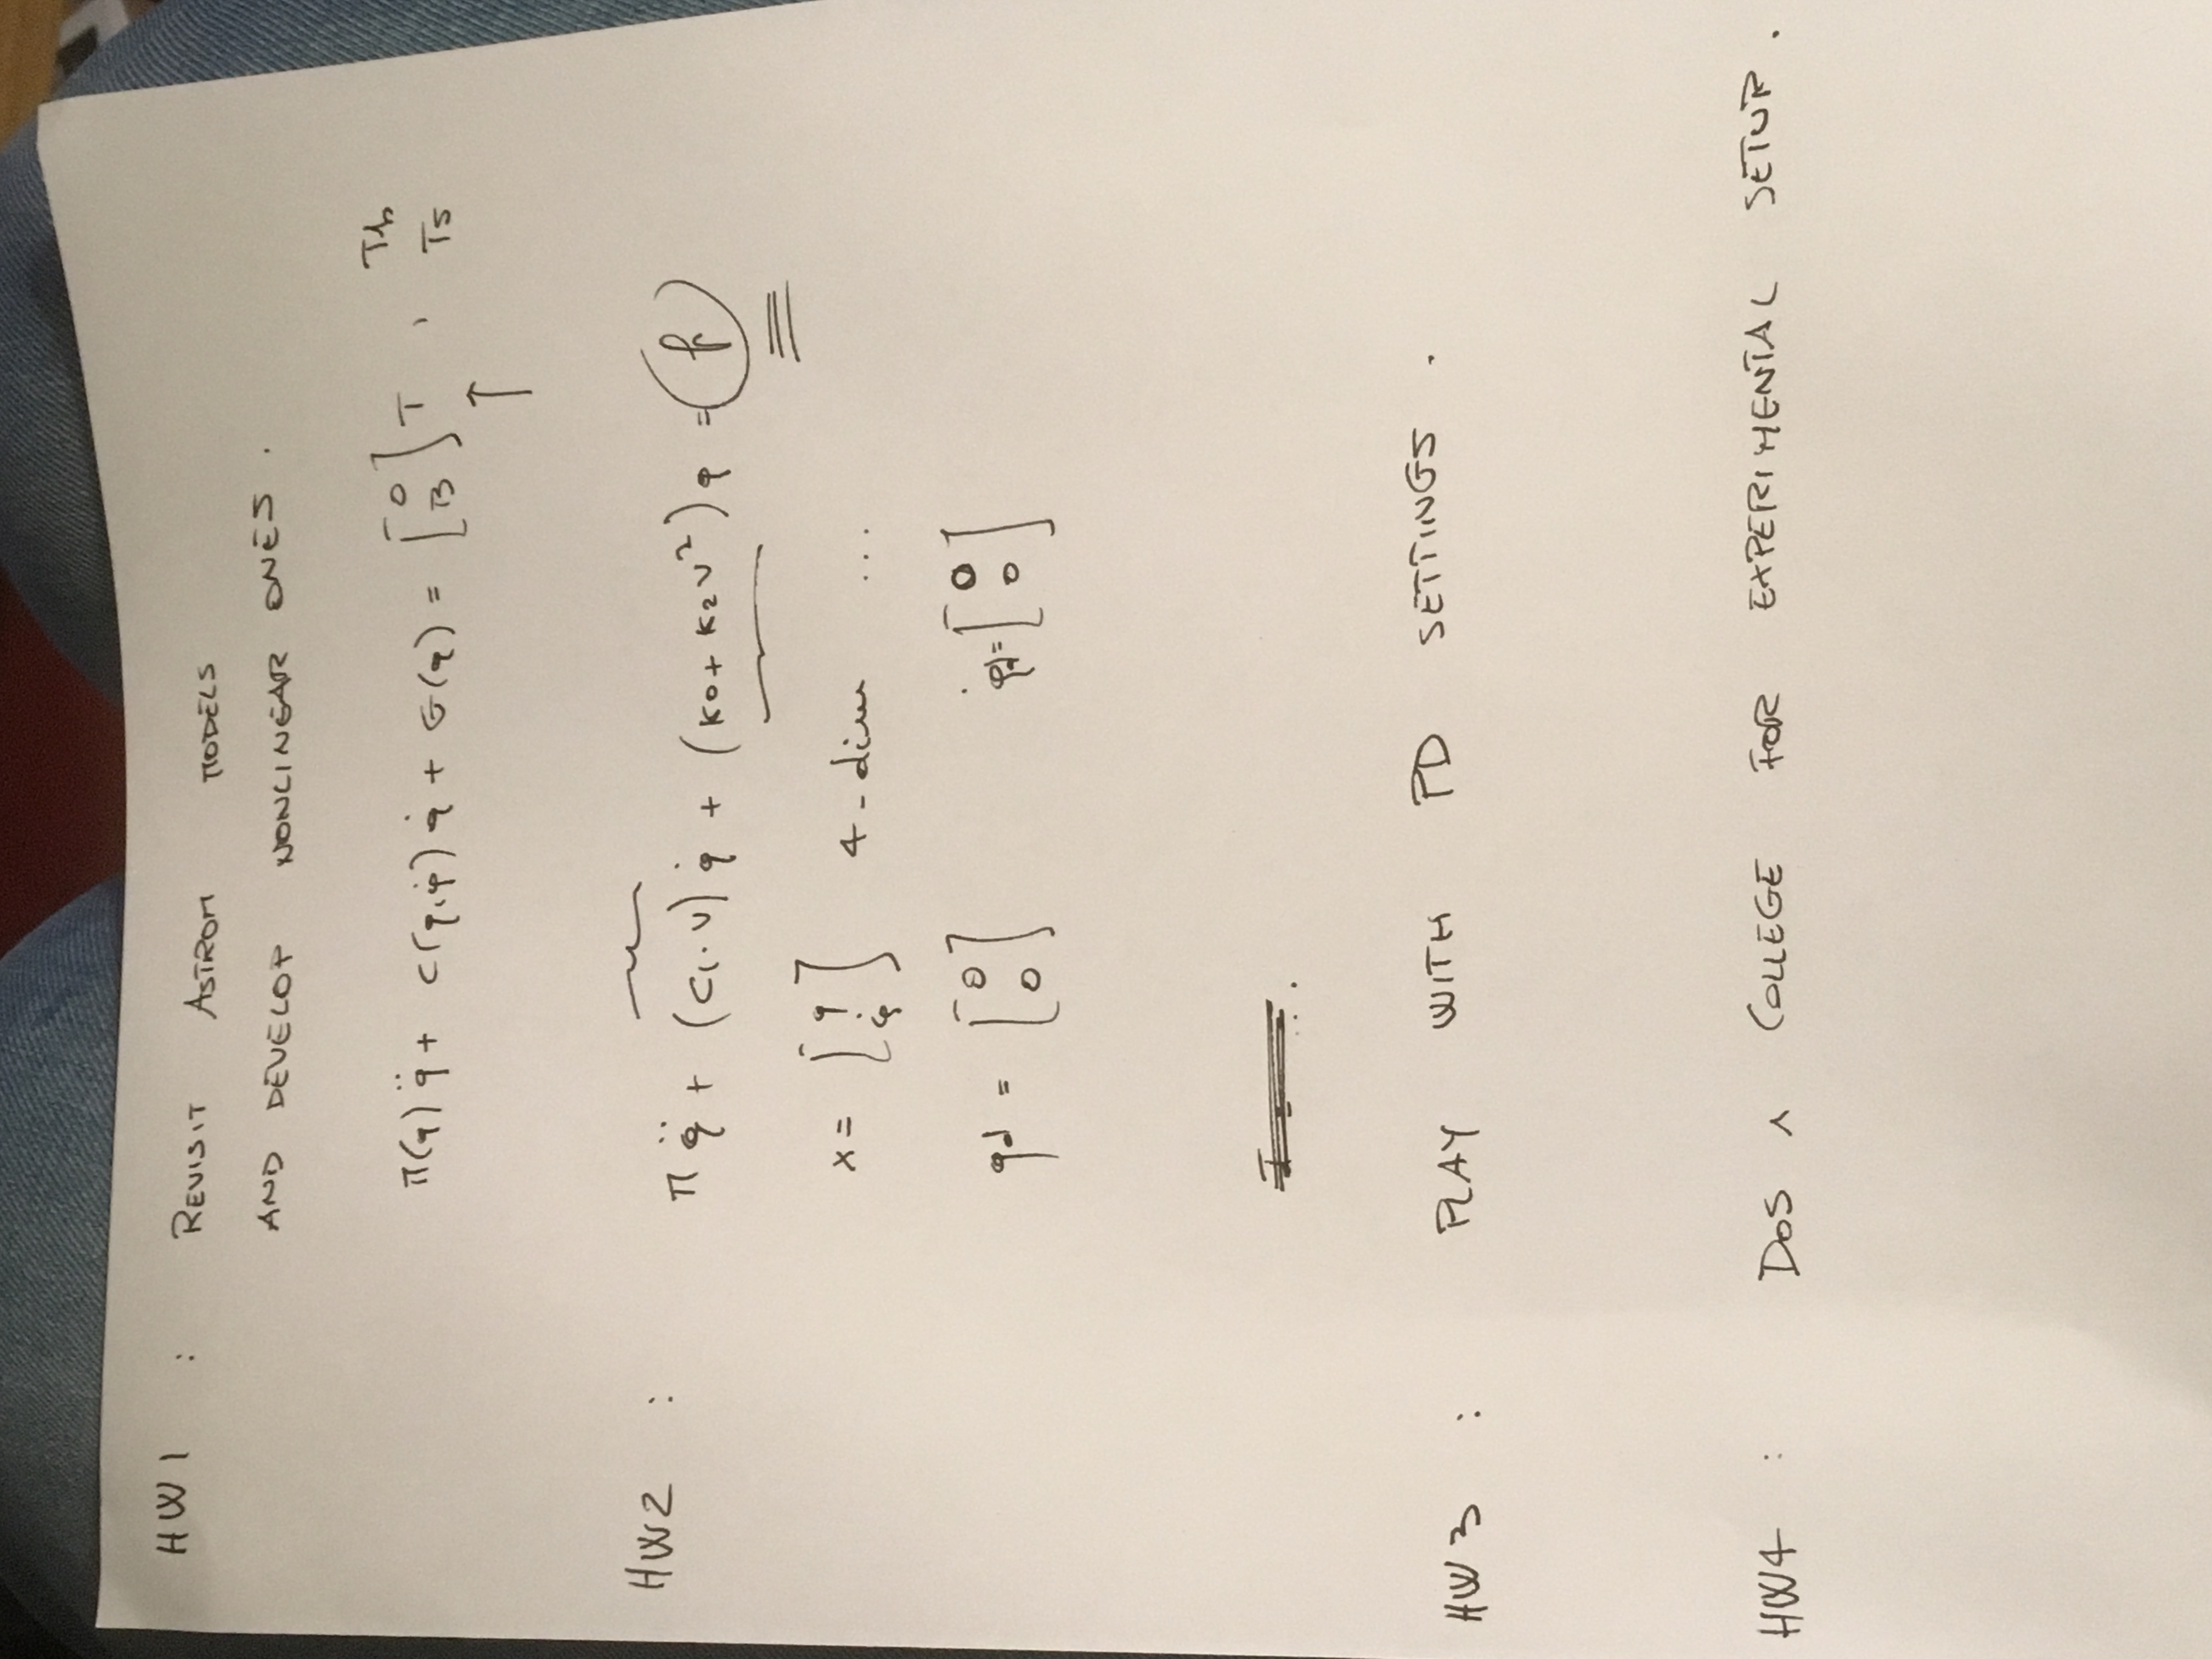 HW1 : REVISIT ASTROM MODELS
AND DEVELOP NONLINEAR ONES.
M(q) q̈ + C(q,q̇) q̇ + G(q) = [0 B] T ,
Ts
HW2 : M q̈ + (C1·V) q̇ + (K0 + K2V²) q = f
x = [q q̇] 4-dim ...
qd = [0 0] q̇d = [0 0]
HW3 : PLAY WITH PD SETTINGS.
HW4 : COLLEGE FOR EXPERIMENTAL SETUP.